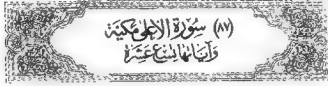 (٨٧) سُورَةُ الأَعْلَى مَكِّيَّة
وَآيَاتُهَا تِسْعَ عَشَرَة